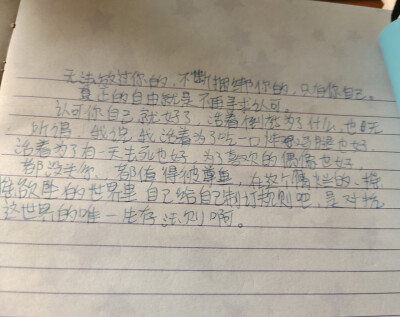 无法放过你的，不断捆绑你的，只有你自己。
真正的自由就是不再寻求认可。
认可你自己就好了，活着到底为了什么，也无
所谓，或说，我活着为了吃一口 也好
活着为了有一天去死也好，为了喜欢的偶像也好，
都没关系，都值得被尊重，在这个腐烂的、
的世界里 自己给自己制订规则吧，是对抗
这世界的唯一生存法则啊。